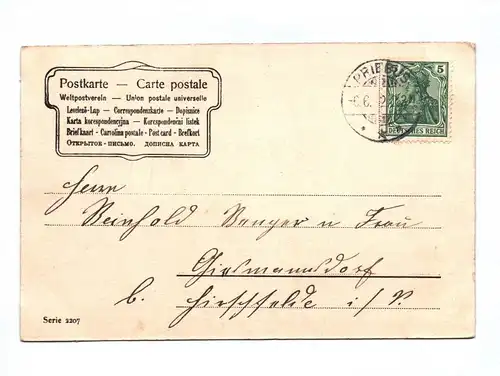 Postkarte — Carte postale
Weltpostverein — Union postale universelle
Levelező-Lap — Correspondenzkarte — Dopisnice
Karta korespondencyjna — Korespondenční lístek
Briefkaart - Cartolina postale - Post card - Brefkort
ОТКРЫТОЕ-ПИСЬМО. ДОПИСНА КАРТА
5
DEUTSCHES REICH
Herrn
Reinhold Wenger u Frau
Giesmannsdorf
b. Hirschfelde i/S.
Serie 2207